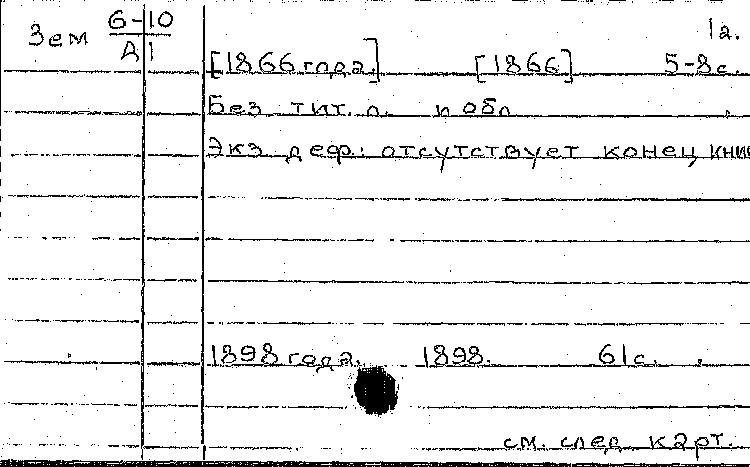 Зем 6-10 1а.
Д1
[1866 года.] [1866] 5-8 с.
Без тит. л. и обл
Экз деф.: отсутствует конец книг
1898 года. 1898. 61 с.
см. след карт.